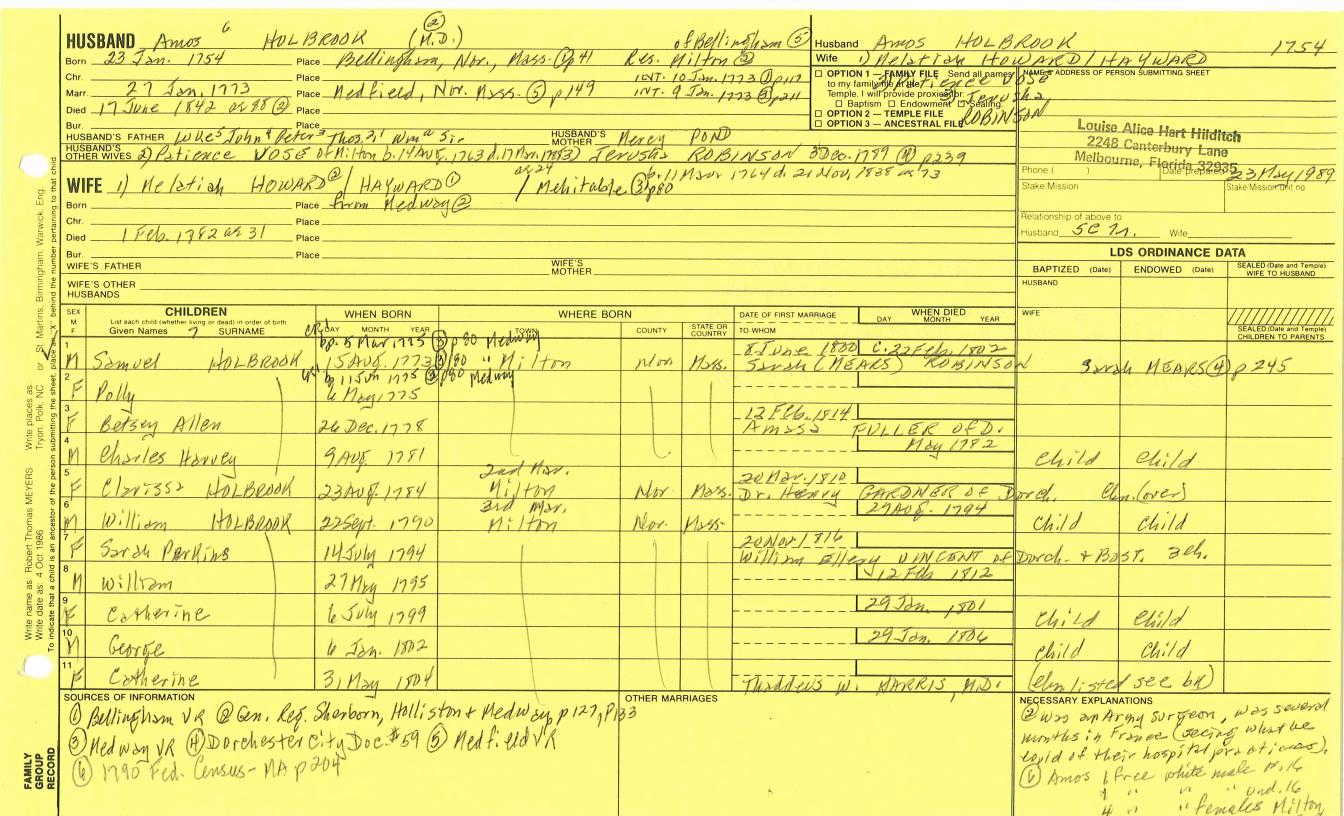 HUSBAND Amos 6 HOLBROOK (M.D.) ② of Bellingham ⑤
Born 23 Jan. 1754 Place Bellingham, Nor., Mass. ① p41 Res. Milton ②
Chr. Place INT. 10 Jan. 1773 ① p117
Marr. 27 Jan. 1773 Place Medfield, Nov. Mass. ⑤ p149 INT. 9 Jan. 1773 ③ p211
Died 17 June 1842 ae 88 ② Place
Bur. Place
HUSBAND'S FATHER Luke 5 John 4 Peter 3 Thos. 2, 1 Wm a Sr. HUSBAND'S MOTHER Mercy POND
HUSBAND'S OTHER WIVES 2) Patience VOSE of Milton b. 14 Aug. 1763 d. 17 Mar. 1789 3) Jerusha ROBINSON 3 Dec. 1789 ④ p239
ae 24 b. 11 Mar 1764 d. 21 Nov. 1838 ae 73
WIFE 1) Melatiah HOWARD ② / HAYWARD ① / Mehitable ③ p80
Born Place from Medway ②
Chr. Place
Died 1 Feb. 1782 ae 31 Place
Bur. Place
WIFE'S FATHER WIFE'S MOTHER
WIFE'S OTHER HUSBANDS
Husband Amos HOLBROOK 1754
Wife 1) Melatiah HOWARD / HAYWARD
2) Patience Vose
3) Jerusha
ROBINSON
☐ OPTION 1 — FAMILY FILE Send all names
to my family file at the
Temple. I will provide proxies for:
☐ Baptism ☐ Endowment ☐ Sealing
☐ OPTION 2 — TEMPLE FILE
☐ OPTION 3 — ANCESTRAL FILE
NAME & ADDRESS OF PERSON SUBMITTING SHEET
Louise Alice Hart Hilditch
2248 Canterbury Lane
Melbourne, Florida 32935
Phone ( ) Date prepared 23 May 1989
Stake Mission Stake Mission Unit no
Relationship of above to
Husband 5C 7r. Wife
LDS ORDINANCE DATA
BAPTIZED (Date) ENDOWED (Date) SEALED (Date and Temple) WIFE TO HUSBAND
HUSBAND
WIFE
SEALED (Date and Temple) CHILDREN TO PARENTS
SEX M F
CHILDREN
List each child (whether living or dead) in order of birth
Given Names 7 SURNAME
WHEN BORN
DAY MONTH YEAR
WHERE BORN
TOWN COUNTY STATE OR COUNTRY
DATE OF FIRST MARRIAGE
TO WHOM
WHEN DIED
DAY MONTH YEAR
bp. 5 Mar. 1775 ③ p80 Medway 8 June 1800 c. 22 Feb. 1802
1 M Samuel HOLBROOK 15 Aug. 1773 ③ p80 " Milton Nor Mass. Sarah (MEARS) ROBINSON Sarah MEARS ④ p245
bp 11 Jun 1775 ③ p80 Medway
2 F Polly 6 May 1775
12 Feb. 1814
3 F Betsey Allen 26 Dec. 1778 Amasa FULLER of D.
May 1782
4 M Charles Harvey 9 Aug. 1781 Child Child
2nd Mar. 20 Mar. 1810
5 F Clarissa HOLBROOK 23 Aug. 1784 Milton Nor Mass. Dr. Henry GARDNER of Dorch. Chn. (over)
3rd Mar. 29 Aug. 1794
6 M William HOLBROOK 22 Sept. 1790 Milton Nor. Mass. Child Child
20 Nov. 1816
7 F Sarah Perkins 14 July 1794 William Ellery VINCENT of Dorch. + Bost. 3 ch.
12 Feb 1812
8 M William 27 May 1795
29 Jan. 1801
9 F Catherine 6 July 1799 Child Child
29 Jan. 1806
10 M George 6 Jan. 1802 Child Child
11 F Catherine 31 May 1804 Thaddeus W. HARRIS, M.D. (Chn listed see bk)
SOURCES OF INFORMATION
① Bellingham VR ② Gen. Reg. Sherborn, Holliston + Medway p127, p133
③ Medway VR ④ Dorchester City Doc. #59 ⑤ Medfield VR
⑥ 1790 Fed. Census - MA p204
OTHER MARRIAGES
NECESSARY EXPLANATIONS
② Was an Army surgeon, was several
months in France (seeing what he
could of their hospital practices).
⑥ Amos 1 free white male ab. 16
1 " " " und. 16
4 " " females Milton
Write name as: Robert Thomas MEYERS Write places as: Tryon, Polk, NC or St. Martins, Birmingham, Warwick, Eng.
Write date as: 4 Oct 1986
To indicate that a child is an ancestor of the person submitting the sheet, place an "X" behind the number pertaining to that child.
FAMILY GROUP RECORD